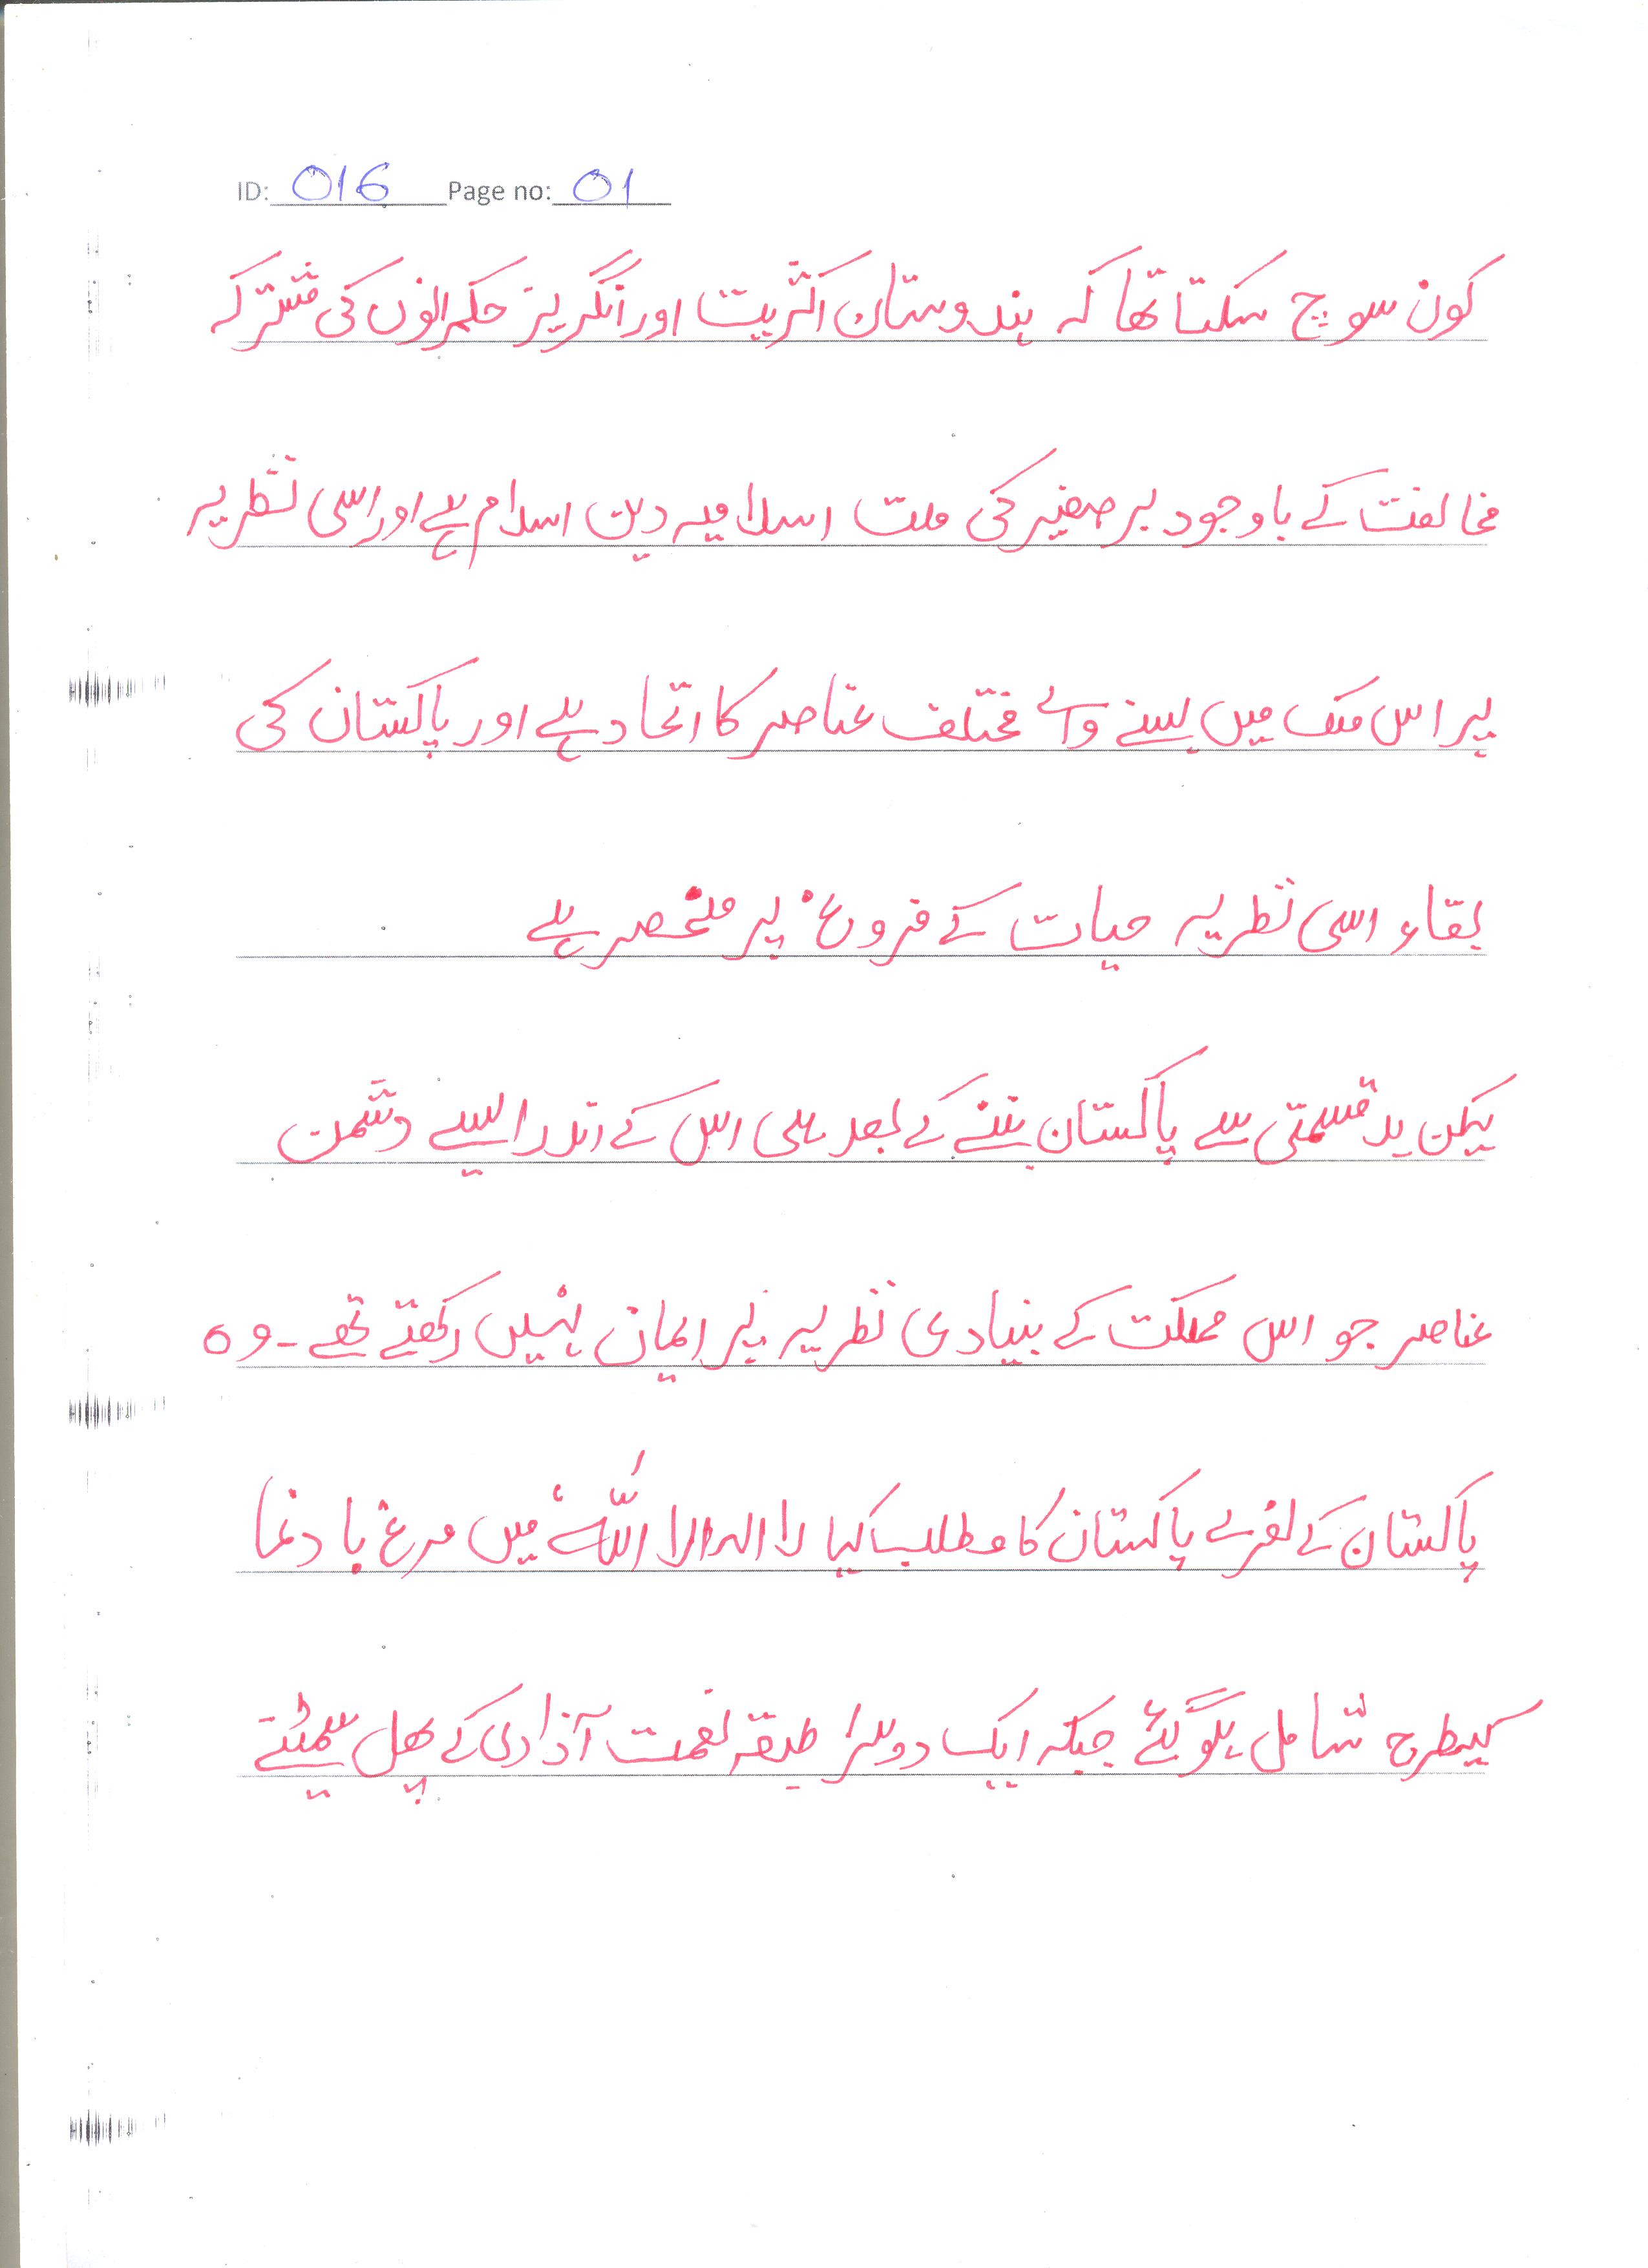 ID: 016 Page no: 01
کون سوچ سکتا تھا کہ ہندوستان اکثریت اور انگریز حکمرانوں کی مشترکہ
مخالفت کے باوجود برصغیر کی ملت اسلامیہ دین اسلام ہے اور اسی نظریہ
پر اس ملک میں بسنے والے مختلف عناصر کا اتحاد ہے اور پاکستان کی
بقاء اسی نظریہ حیات کے فروغ پر منحصر ہے
لیکن بدقسمتی سے پاکستان بننے کے بعد ہی اس کے اندر ایسے دشمن
عناصر جو اس مملکت کے بنیادی نظریہ پر ایمان نہیں رکھتے تھے۔ وہ
پاکستان کے نعرے پاکستان کا مطلب کیا لا الہ الا اللہ میں مرغ باد نما
کیطرح شامل ہوگئے جبکہ ایک دوسرا طبقہ نعمت آزادی کے پھل سمیٹنے